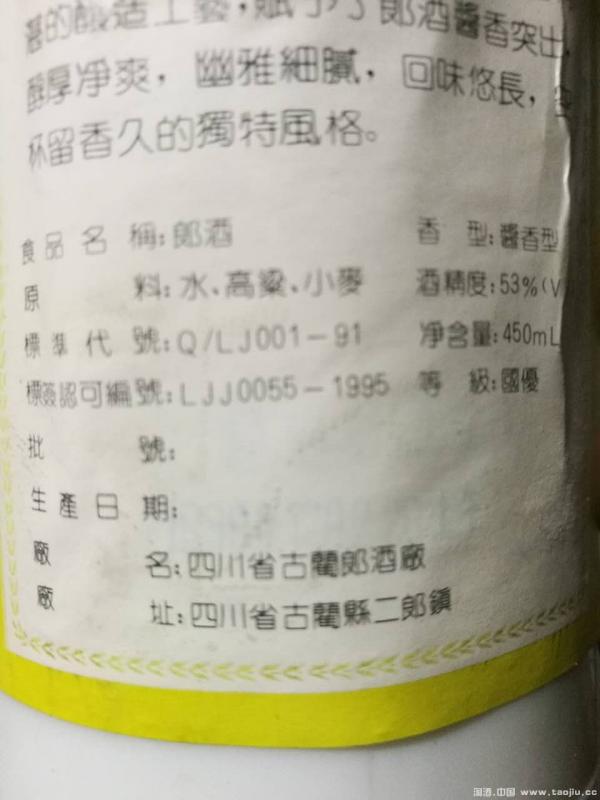 的釀造工藝,賦予了郎酒醬香突出,
醇厚凈爽，幽雅細膩，回味悠長，空
杯留香久的獨特風格。
食品名稱:郎酒 香型:醬香型
原料:水、高粱、小麥 酒精度:53%(V
標準代號:Q/LJ001-91 凈含量:450mL
標簽認可編號:LJJ0055-1995 等級:國優
批號:
生產日期:
廠名:四川省古藺郎酒廠
廠址:四川省古藺縣二郎鎮
淘酒.中国 www.taojiu.cc